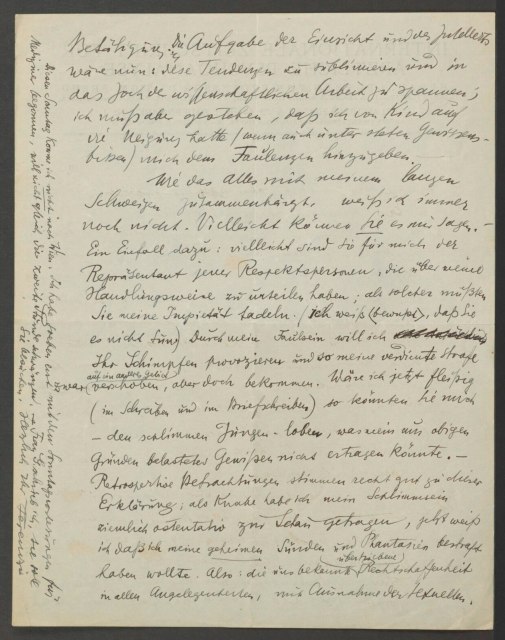 Betätigung. Die Aufgabe der Einsicht und des Intellects
wäre nun: diese Tendenzen zu sublimieren und in
das Joch der wissenschaftlichen Arbeit zu spannen;
ich muß aber gestehen, daß ich von Kind auf
die Neigung hatte (wenn auch unter steten Gewissens-
bissen) mich dem Faulenzen hinzugeben.
Wie das alles mit meinem langen
Schweigen zusammenhängt, weiß ich immer
noch nicht. Vielleicht können Sie es mir sagen. –
Ein Einfall dazu: vielleicht sind Sie für mich der
Repräsentant jener Respektsperson, die über meine
Handlungsweise zu urteilen haben; als solcher müßten
Sie meine Impietät tadeln. (Ich weiß (bewußt), daß Sie
es nicht tun) Durch mein Faulsein will ich
Ihr Schimpfen provozieren und so meine verdiente Strafe
auf ein anderes Gebiet
zwar verschoben, aber doch bekommen. Wäre ich jetzt fleißig
(im Schreiben und im Briefschreiben) so könnten Sie mich
– den schlimmen Jungen – loben, was mein aus obigen
Gründen belastetes Gewissen nicht ertragen könnte. –
Retrospektive Betrachtungen stimmen recht gut zu dieser
Erklärung; als Knabe habe ich mein Schlimmsein
ziemlich ostentativ zur Schau getragen, jetzt weiß
ich daß ich meine geheimen Sünden und Phantasien bestraft
(übertriebene)
haben wollte. Also: die unbekannte Rechtschaffenheit
in allen Angelegenheiten, mit Ausnahme der sexuellen.
Diesen Sonntag komme ich nicht nach Wien. Ich habe soeben erst mit den Sonntagsvorlesungen für
Mediziner begonnen, will nicht gleich die zweite Stunde schwänzen.
Sie beide. Herzlich Ihr Ferenczi